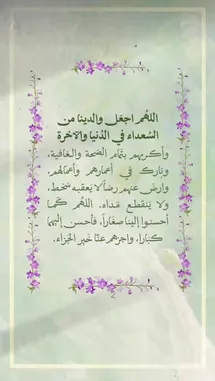 اللهم اجعل والدينا من
السعداء في الدنيا والآخرة
وأكرمهم بتمام الصحة والعافية،
وبارك في أعمارهم وأعمالهم،
وارض عنهم رضا لا يعقبه سخط،
ولا ينقطع مداه. اللهم كما
أحسنوا إلينا صغاراً، فأحسن إليهما
كباراً، واجزهم عنّا خير الجزاء.